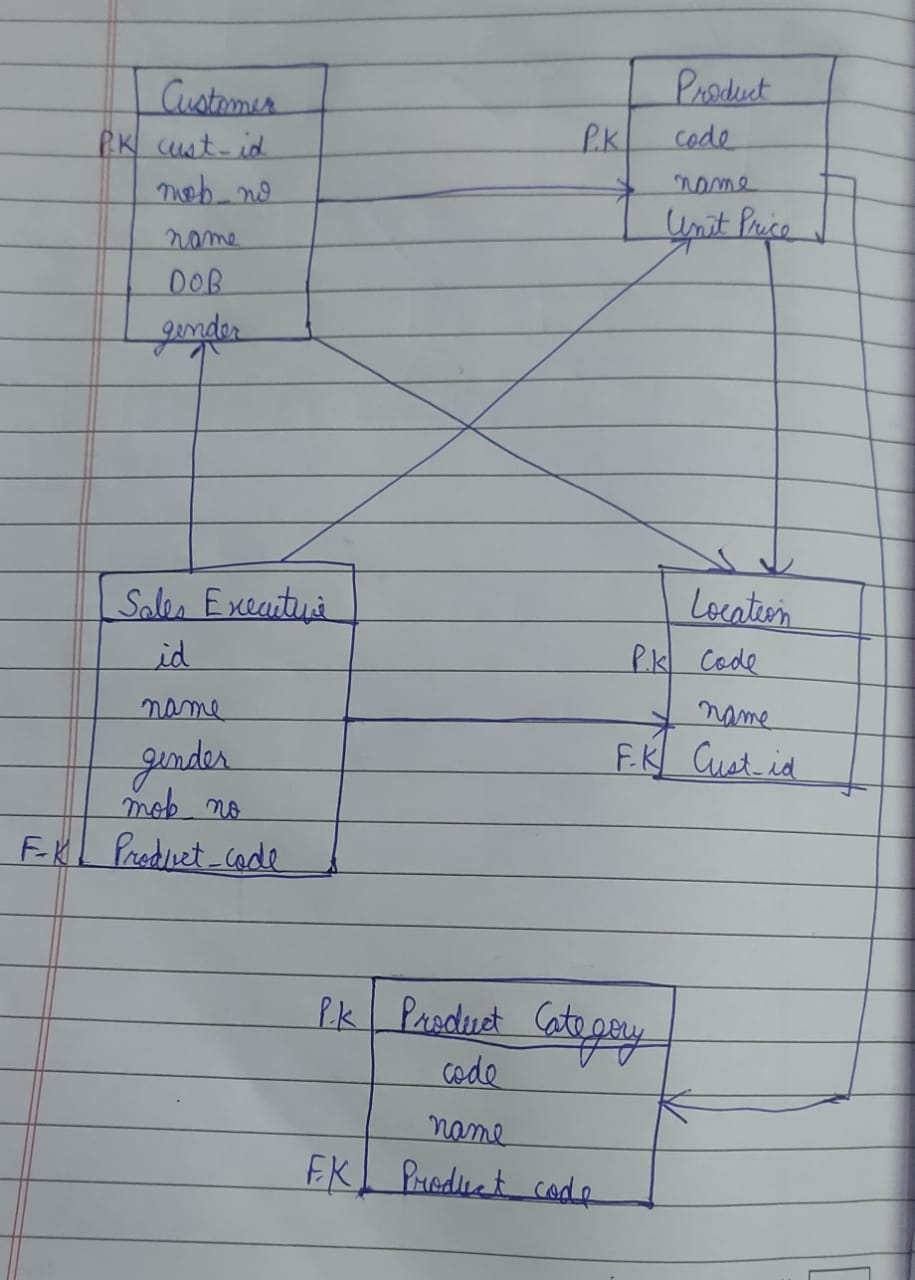 Customer
P.K cust_id
mob_no
name
DOB
gender
Product
P.K code
name
Unit Price
Sales Executive
id
name
gender
mob_no
F-K Product_code
Location
P.K code
name
F-K Cust_id
P.K Product Category
code
name
F.K Product_code